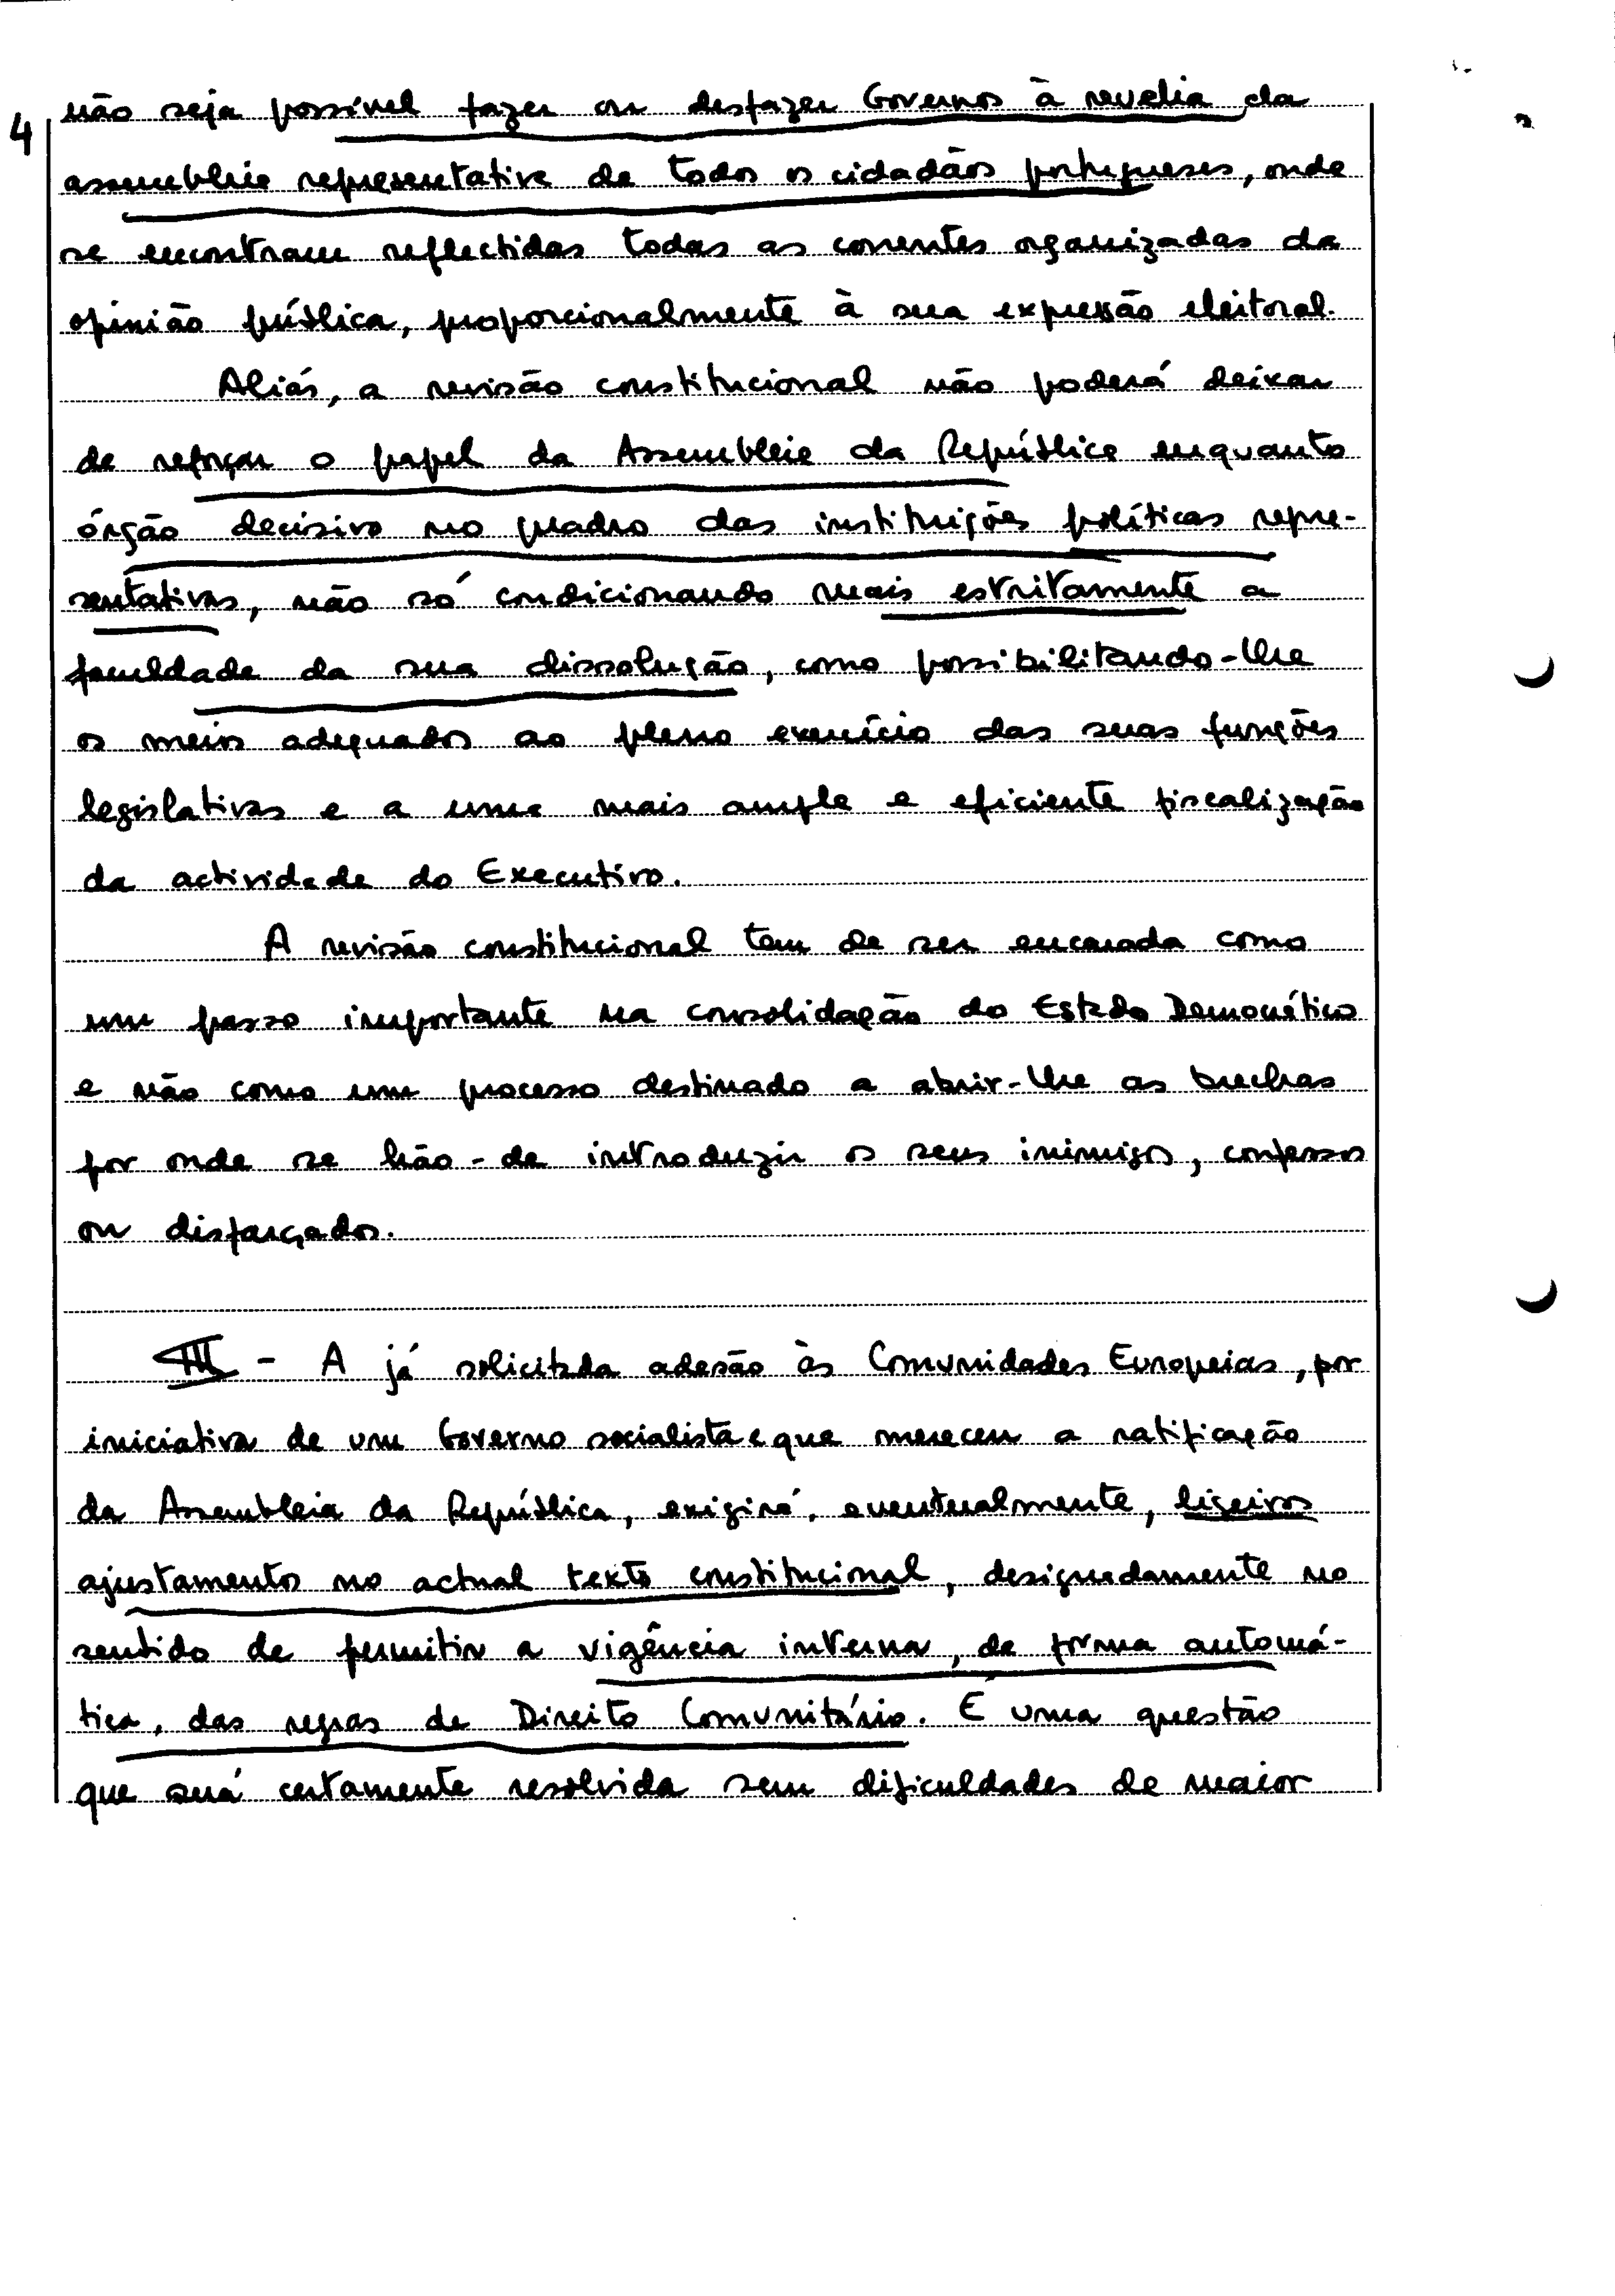 4
não seja possível fazer ou desfazer Governos à revelia da
assembleia representativa de todos os cidadãos portugueses, onde
se encontram reflectidas todas as correntes organizadas da
opinião pública, proporcionalmente à sua expressão eleitoral.
Aliás, a revisão constitucional não poderá deixar
de reforçar o papel da Assembleia da República enquanto
órgão decisivo no quadro das instituições políticas repre-
sentativas, não só condicionando mais estritamente a
faculdade da sua dissolução, como possibilitando-lhe
os meios adequados ao pleno exercício das suas funções
legislativas e a uma mais ampla e eficiente fiscalização
da actividade do Executivo.
A revisão constitucional tem de ser encarada como
um passo importante na consolidação do Estado Democrático
e não como um processo destinado a abrir-lhe as brechas
por onde se hão-de introduzir os seus inimigos, confessos
ou disfarçados.
III - A já solicitada adesão às Comunidades Europeias, por
iniciativa de um Governo socialista e que mereceu a ratificação
da Assembleia da República, exigirá, eventualmente, ligeiros
ajustamentos no actual texto constitucional, designadamente no
sentido de permitir a vigência interna, de forma automá-
tica, das regras de Direito Comunitário. É uma questão
que será certamente resolvida sem dificuldades de maior